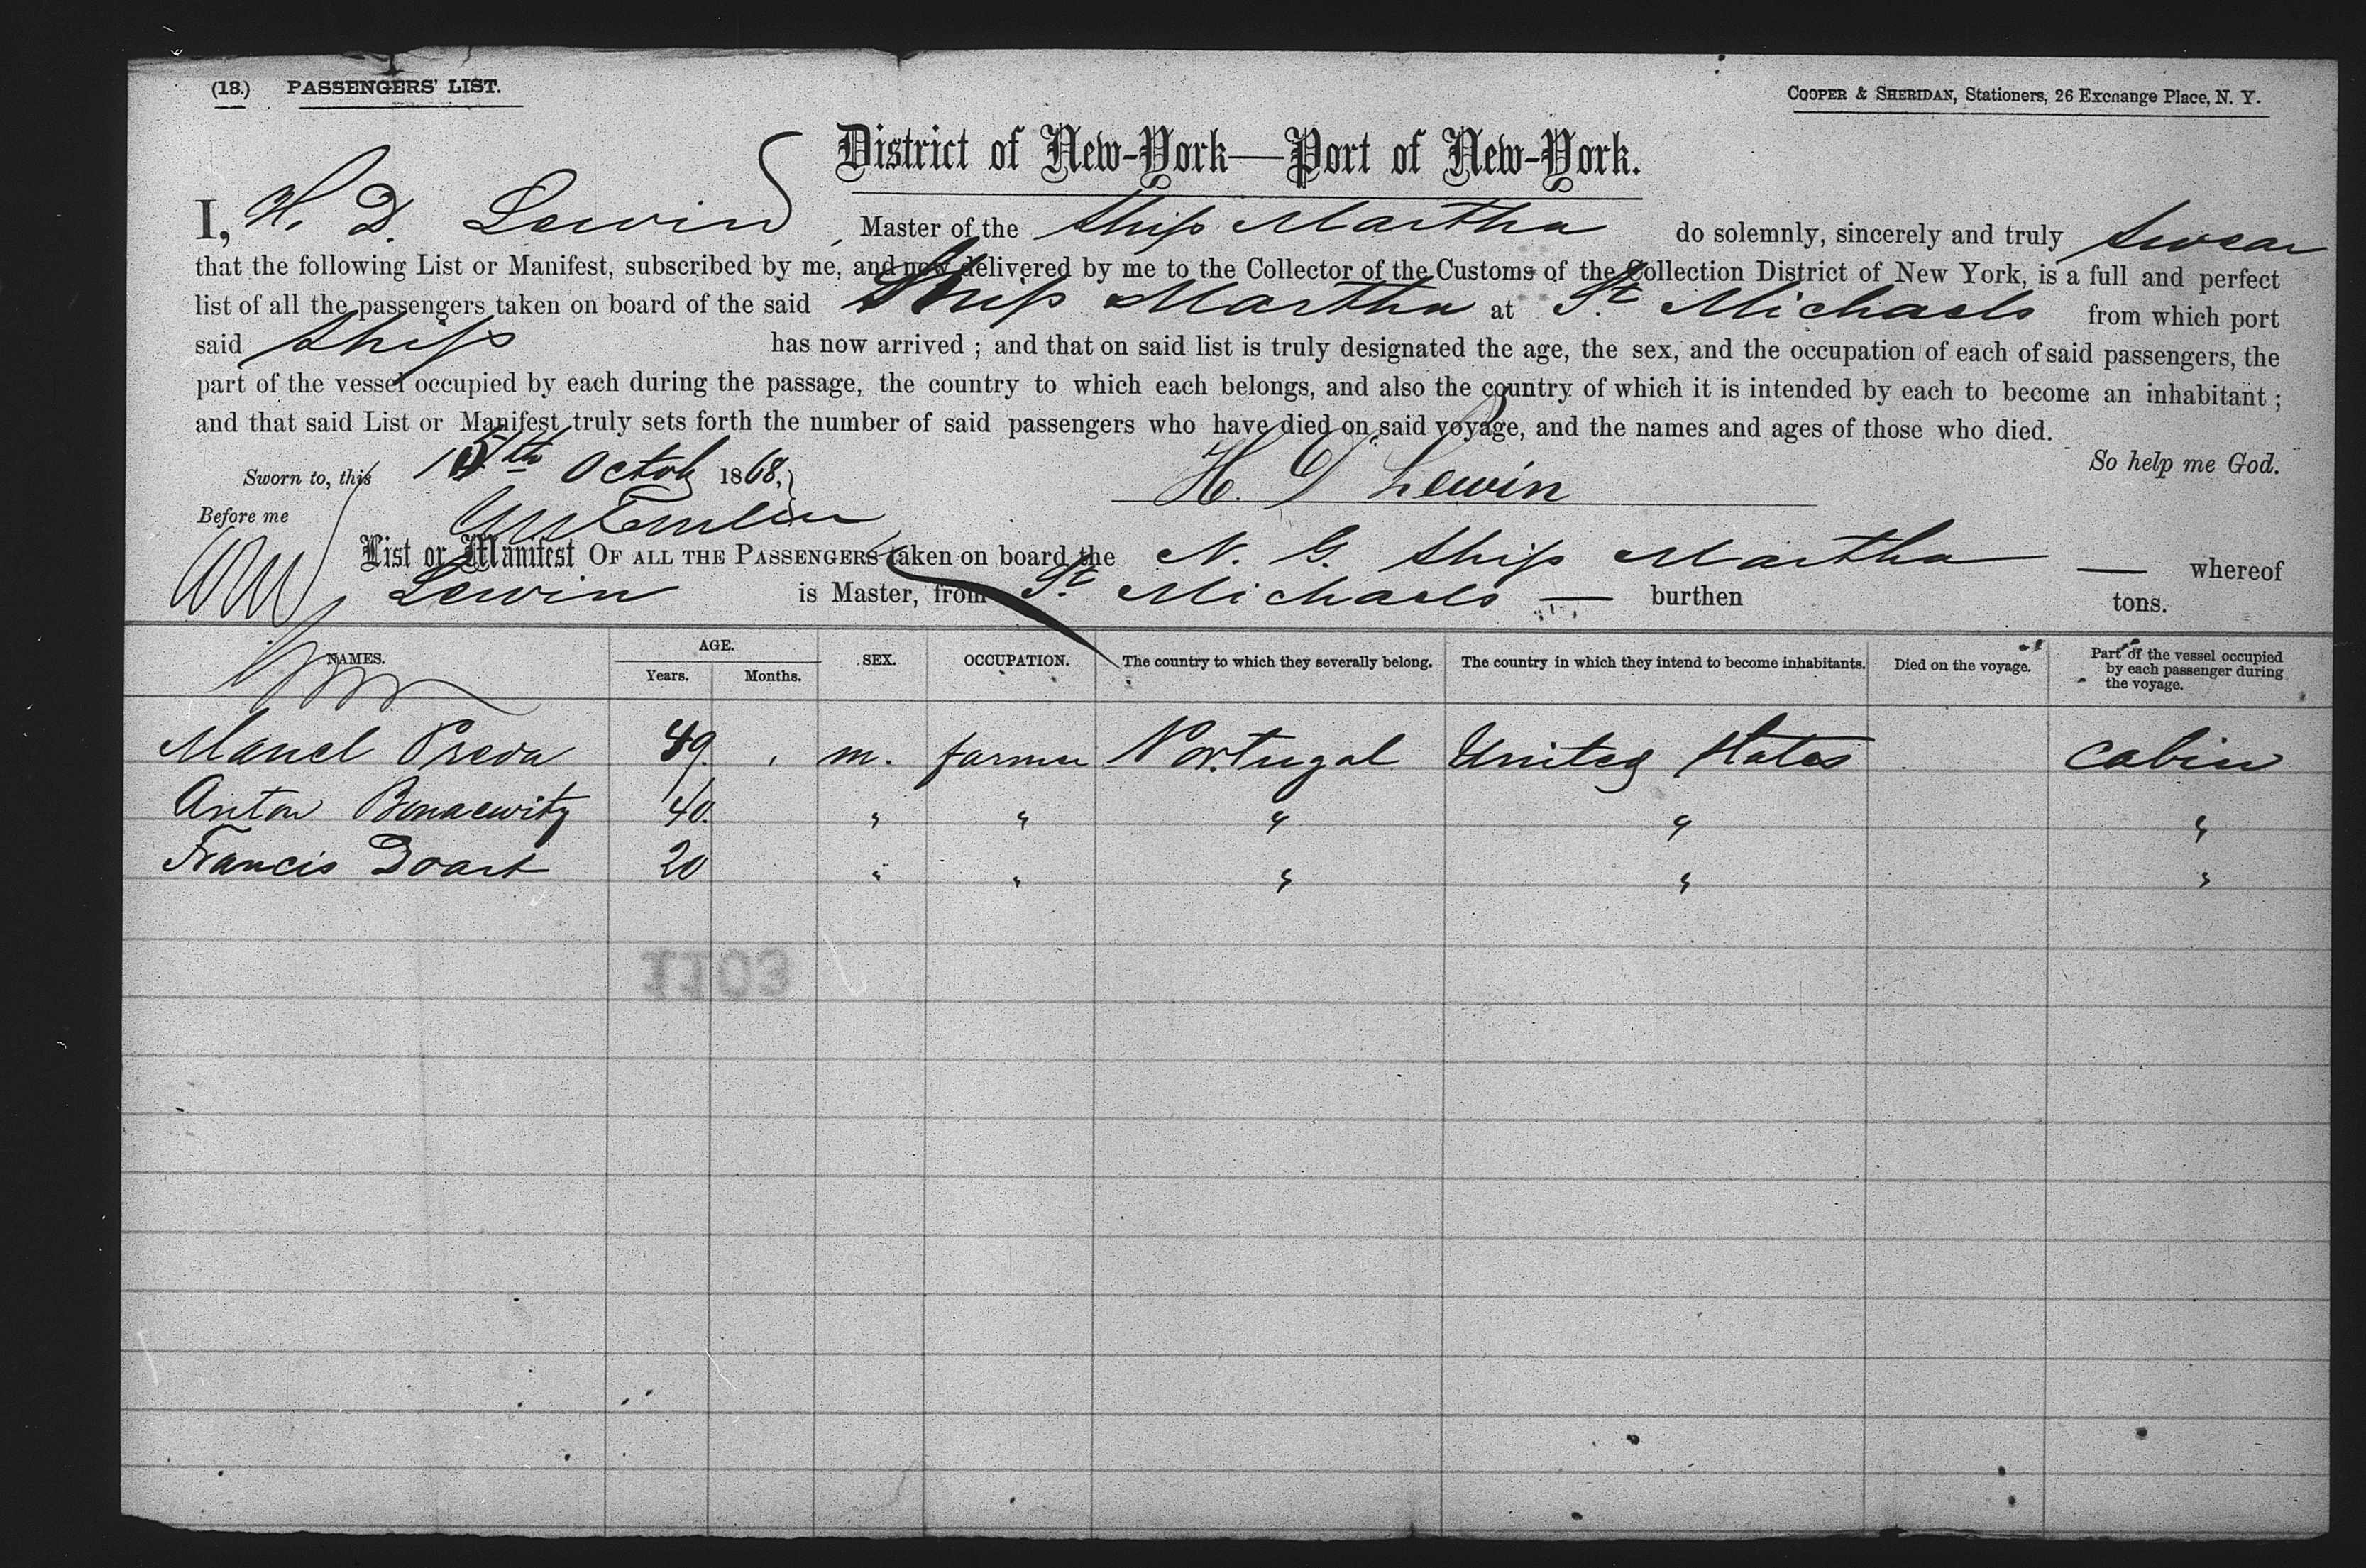 (18.) PASSENGERS' LIST.
COOPER & SHERIDAN, Stationers, 26 Exchange Place, N. Y.
District of New-York—Port of New-York.
I, H. D. Lewin, Master of the Ship Martha do solemnly, sincerely and truly swear
that the following List or Manifest, subscribed by me, and now delivered by me to the Collector of the Customs of the Collection District of New York, is a full and perfect
list of all the passengers taken on board of the said Ship Martha at St. Michaels from which port
said Ship has now arrived ; and that on said list is truly designated the age, the sex, and the occupation of each of said passengers, the
part of the vessel occupied by each during the passage, the country to which each belongs, and also the country of which it is intended by each to become an inhabitant ;
and that said List or Manifest truly sets forth the number of said passengers who have died on said voyage, and the names and ages of those who died.
So help me God.
Sworn to, this 15th Octob 1868,
H. D Lewin
Before me
List or Manifest OF ALL THE PASSENGERS taken on board the N. G. Ship Martha — whereof
Lewin is Master, from St. Michaels — burthen tons.
NAMES. AGE. Years. Months. SEX. OCCUPATION. The country to which they severally belong. The country in which they intend to become inhabitants. Died on the voyage. Part of the vessel occupied by each passenger during the voyage.
Manel 49. m. farmer Portugal United States cabin
Anton 40. " " " " "
Francis Doart 20 " " " " "
1103